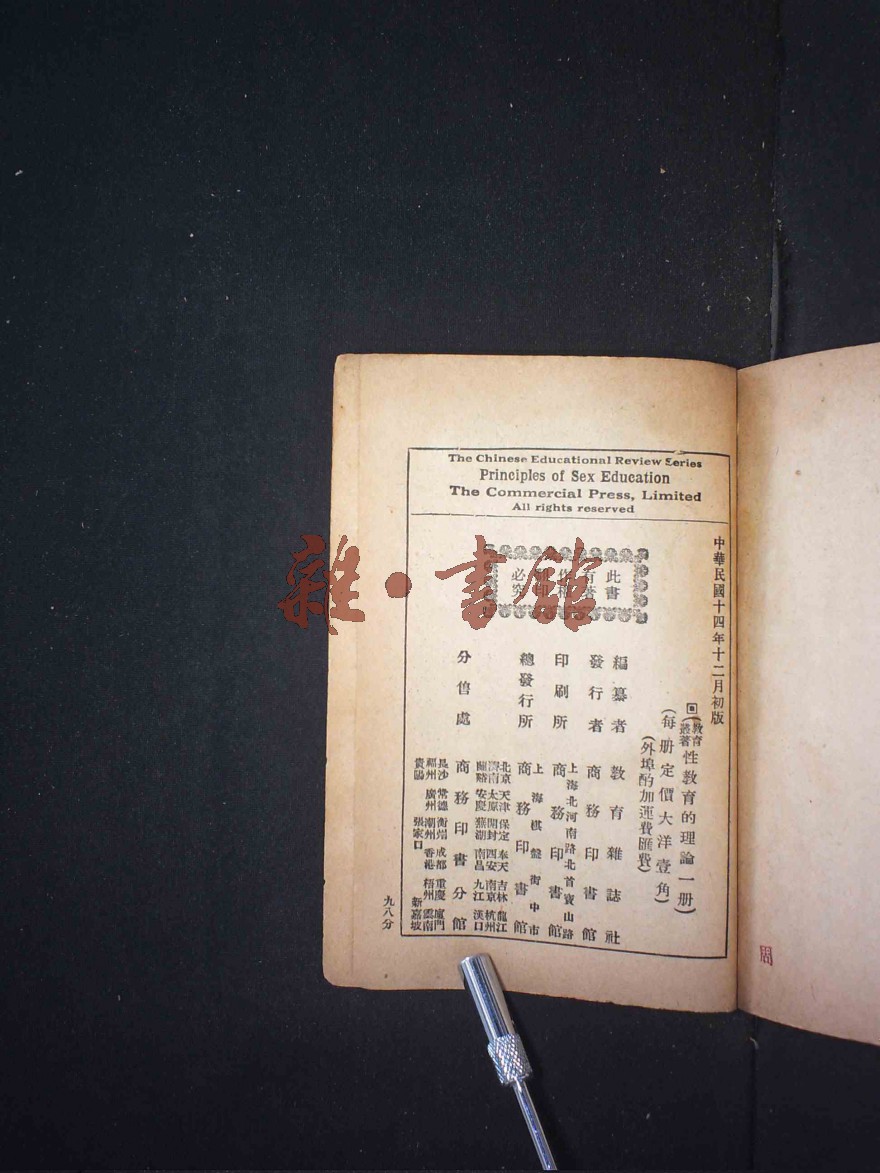 The Chinese Educational Review Series
Principles of Sex Education
The Commercial Press, Limited
All rights reserved
中華民國十四年十二月初版
(教育叢著性教育的理論一册)
(每册定價大洋壹角)
(外埠酌加運費匯費)
此書
有著
作權
翻印
必究
編纂者 教育雜誌社
發行者 商務印書館
上海北河南路北首寶山路
印刷所 商務印書館
上海棋盤街中市
總發行所 商務印書館
分售處 商務印書分館
北京 天津 保定 奉天 吉林 龍江
濟南 太原 開封 西安 南京 杭州
蘭谿 安慶 蕪湖 南昌 九江 漢口
長沙 常德 衡州 成都 重慶 廈門
福州 廣州 潮州 香港 梧州 雲南
貴陽 張家口 新嘉坡
九八分
雜·書館